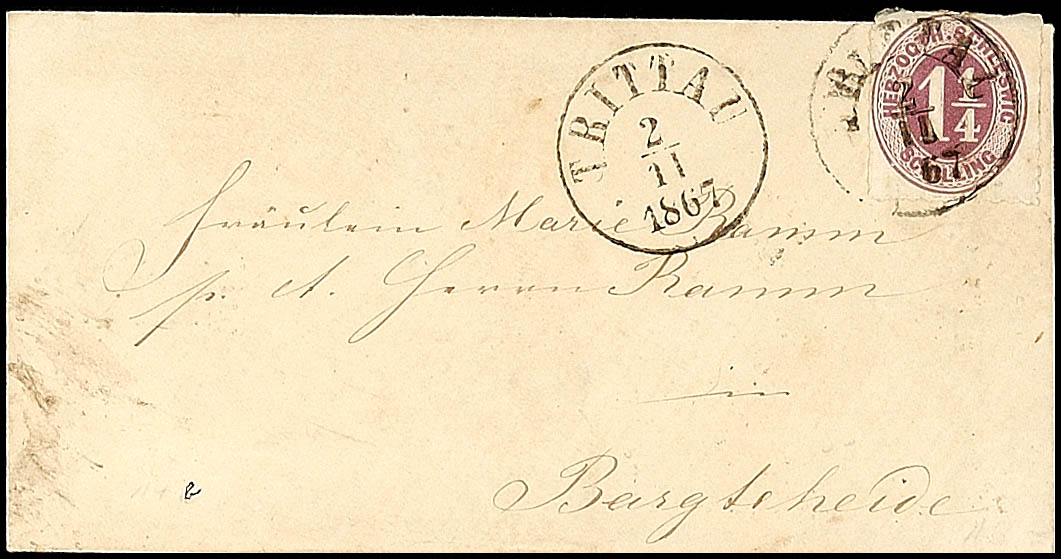 TRITTAU
2
11
1867
HERZOGTH. SCHLESWIG
1 1/4
SCHILLING
2
11
67
Fräulein Marie Ramm
p. A. Herrn Ramm
in
Bargteheide